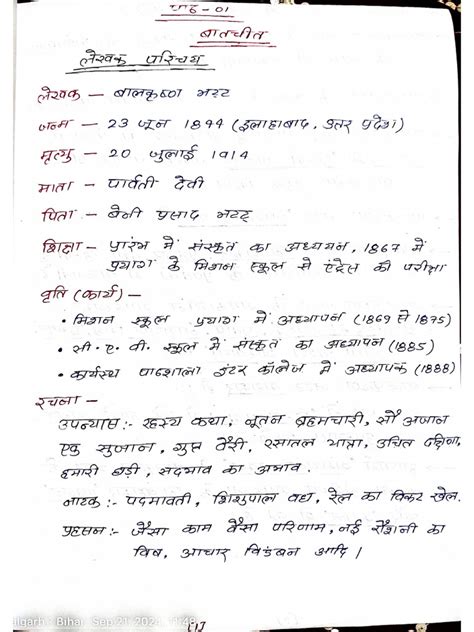 पाठ - 01
बातचीत
लेखक परिचय
लेखक — बालकृष्ण भट्ट
जन्म — 23 जून 1844 (इलाहाबाद, उत्तर प्रदेश)
मृत्यु — 20 जुलाई 1914
माता — पार्वती देवी
पिता — बेनी प्रसाद भट्ट
शिक्षा — प्रारंभ में संस्कृत का अध्ययन, 1867 में
प्रयाग के मिशन स्कूल से एंट्रेंस की परीक्षा
वृति (कार्य) —
• मिशन स्कूल प्रयाग में अध्यापन (1869 से 1875)
• सी. ए. वी. स्कूल में संस्कृत का अध्यापन (1885)
• कायस्थ पाठशाला इंटर कॉलेज में अध्यापक (1888)
रचना —
उपन्यास :- रहस्य कथा, नूतन ब्रहमचारी, सौ अजान
एक सुजान, गुप्त वैरी, रसातल यात्रा, उचित दक्षिणा,
हमारी घड़ी, सदभाव का अभाव.
नाटक :- पदमावती, शिशुपाल वध, रेल का विकट खेल.
प्रहसन :- जैसा काम वैसा परिणाम, नई रोशनी का
विष, आचार विडंबन आदि।
ulgarh, Bihar Sep 21, 2024, 11:48